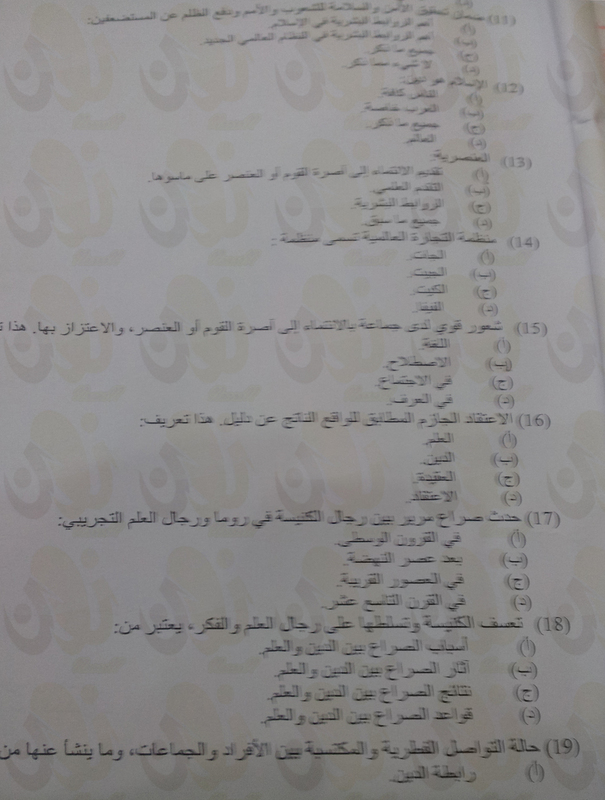 (11) ضمان تحقيق الأمن والسلامة للشعوب والأمم ودفع الظلم عن المستضعفين:
أ) أهم الروابط البشرية في الإسلام.
ب) أهم الروابط البشرية في النظام العالمي الجديد.
ج) جميع ما ذكر.
د) لا شيء مما ذكر.
(12) الإسلام هو دين:
أ) للناس كافة.
ب) العرب خاصة.
ج) جميع ما ذكر.
د) العالم.
(13) العنصرية:
أ) تقديم الانتماء إلى أصرة القوم أو العنصر على ماسواها.
ب) التقدم العلمي.
ج) الروابط البشرية.
د) جميع ما سبق.
(14) منظمة التجارة العالمية تسمى منظمة:
أ) الجات.
ب) الجيت.
ج) الكيت.
د) الفيفا.
(15) شعور قوي لدى جماعة بالانتماء إلى أصرة القوم أو العنصر، والاعتزاز بها. هذا
أ) اللغة.
ب) الاصطلاح.
ج) في الاجتماع.
د) في العرف.
(16) الاعتقاد الجازم المطابق للواقع الناتج عن دليل. هذا تعريف:
أ) العلم.
ب) الدين.
ج) العقيدة.
د) الاعتقاد.
(17) حدث صراع مرير بين رجال الكنيسة في روما ورجال العلم التجريبي:
أ) في القرون الوسطى.
ب) بعد عصر النهضة.
ج) في العصور القريبة.
د) في القرن التاسع عشر.
(18) تعسف الكنيسة وتسلطها على رجال العلم والفكر، يعتبر من:
أ) أسباب الصراع بين الدين والعلم.
ب) آثار الصراع بين الدين والعلم.
ج) نتائج الصراع بين الدين والعلم.
د) قواعد الصراع بين الدين والعلم.
(19) حالة التواصل الفطرية والمكتسبة بين الأفراد والجماعات، وما ينشأ عنها من
أ) رابطة الدين.